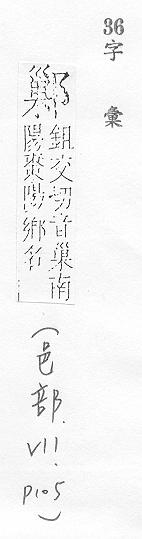 36
字彙
鄛
鉏交切音巢南
陽棗陽鄉名
(邑部.
VII.
P105)